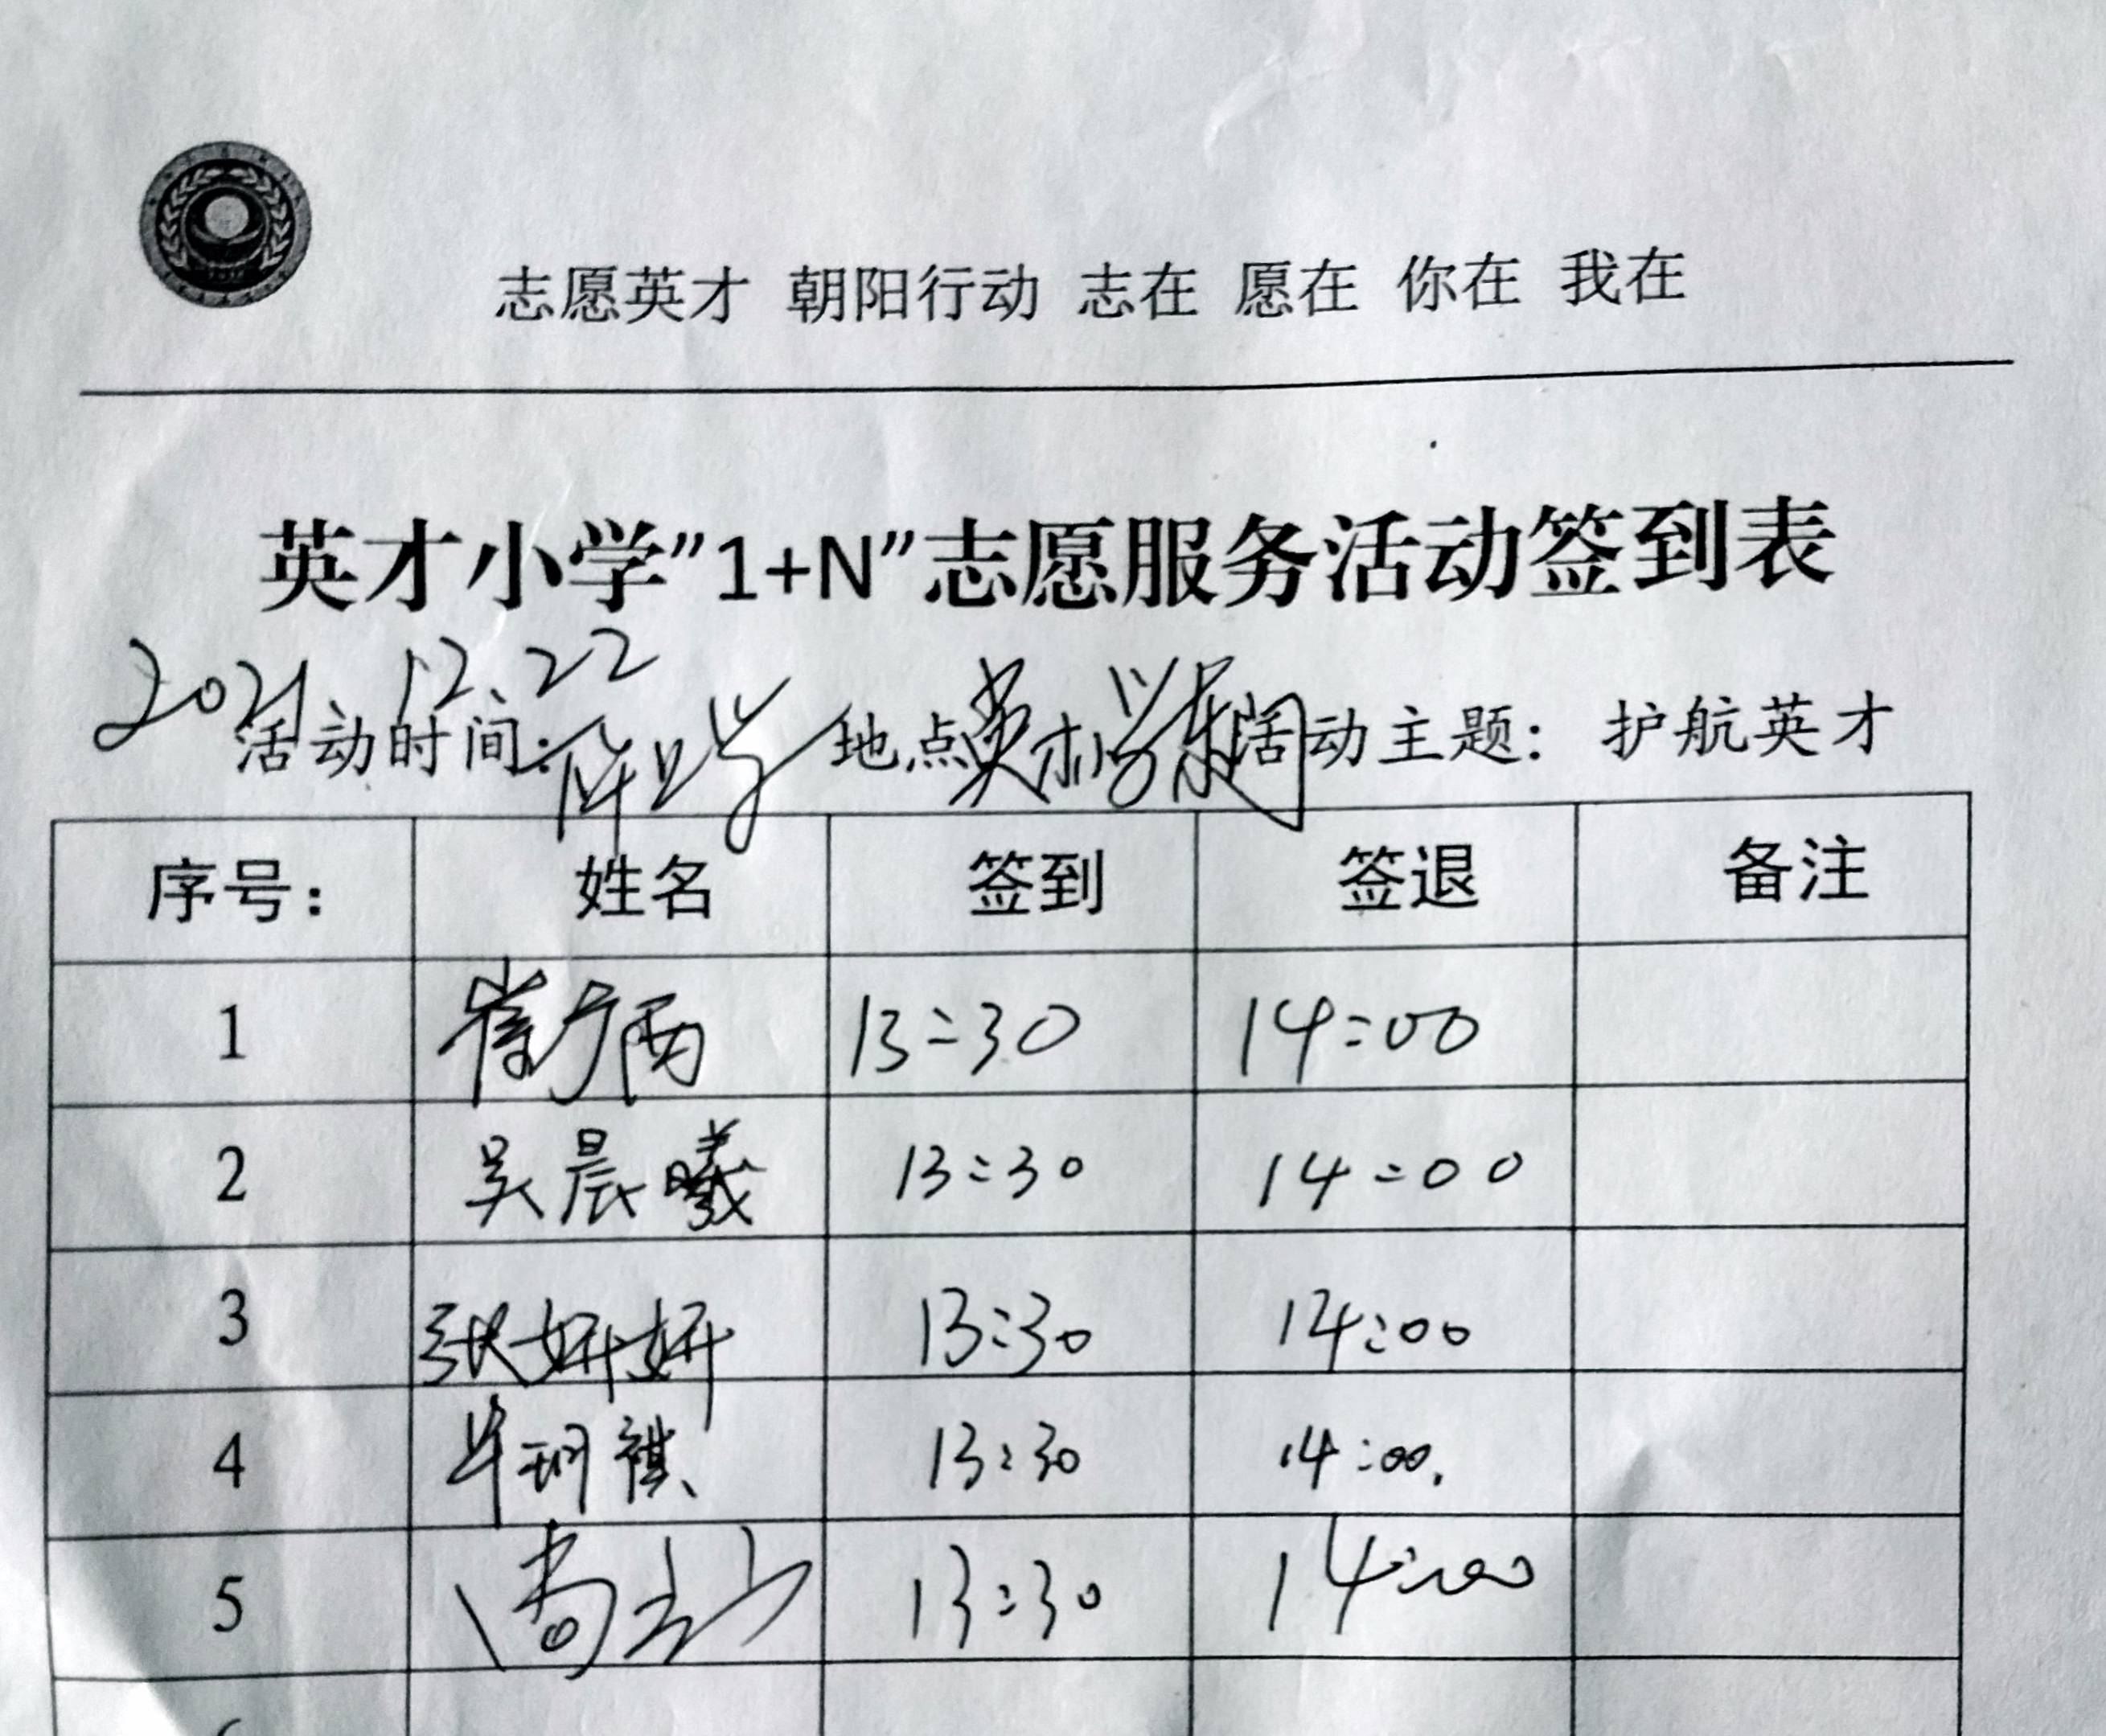 志愿英才 朝阳行动 志在 愿在 你在 我在
英才小学"1+N"志愿服务活动签到表
2021、12、22
活动时间: 地点 英才小学东 活动主题: 护航英才
序号: 姓名 签到 签退 备注
1 崔 雨 13:30 14:00
2 吴晨曦 13:30 14:00
3 张妍妍 13:30 14:00
4 毕珂祺 13:30 14:00
5 13:30 14:00